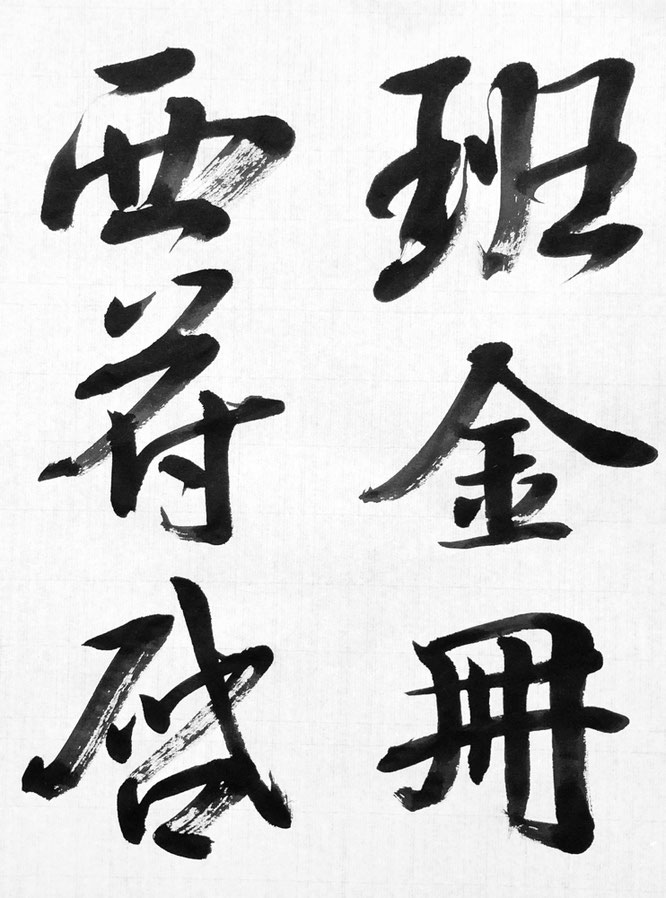 班金冊
西符啓